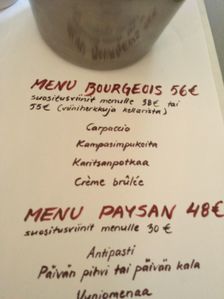 MENU BOURGEOIS 56€
suositusviinit menulle 38€ tai
55€ (viiniherkkuja kellarista)
Carpaccio
Kampasimpukoita
Karitsanpotkaa
Crème brûlée
MENU PAYSAN 48€
suositusviinit menulle 30€
Antipasti
Päivän pihvi tai päivän kala
Uuniomenaa